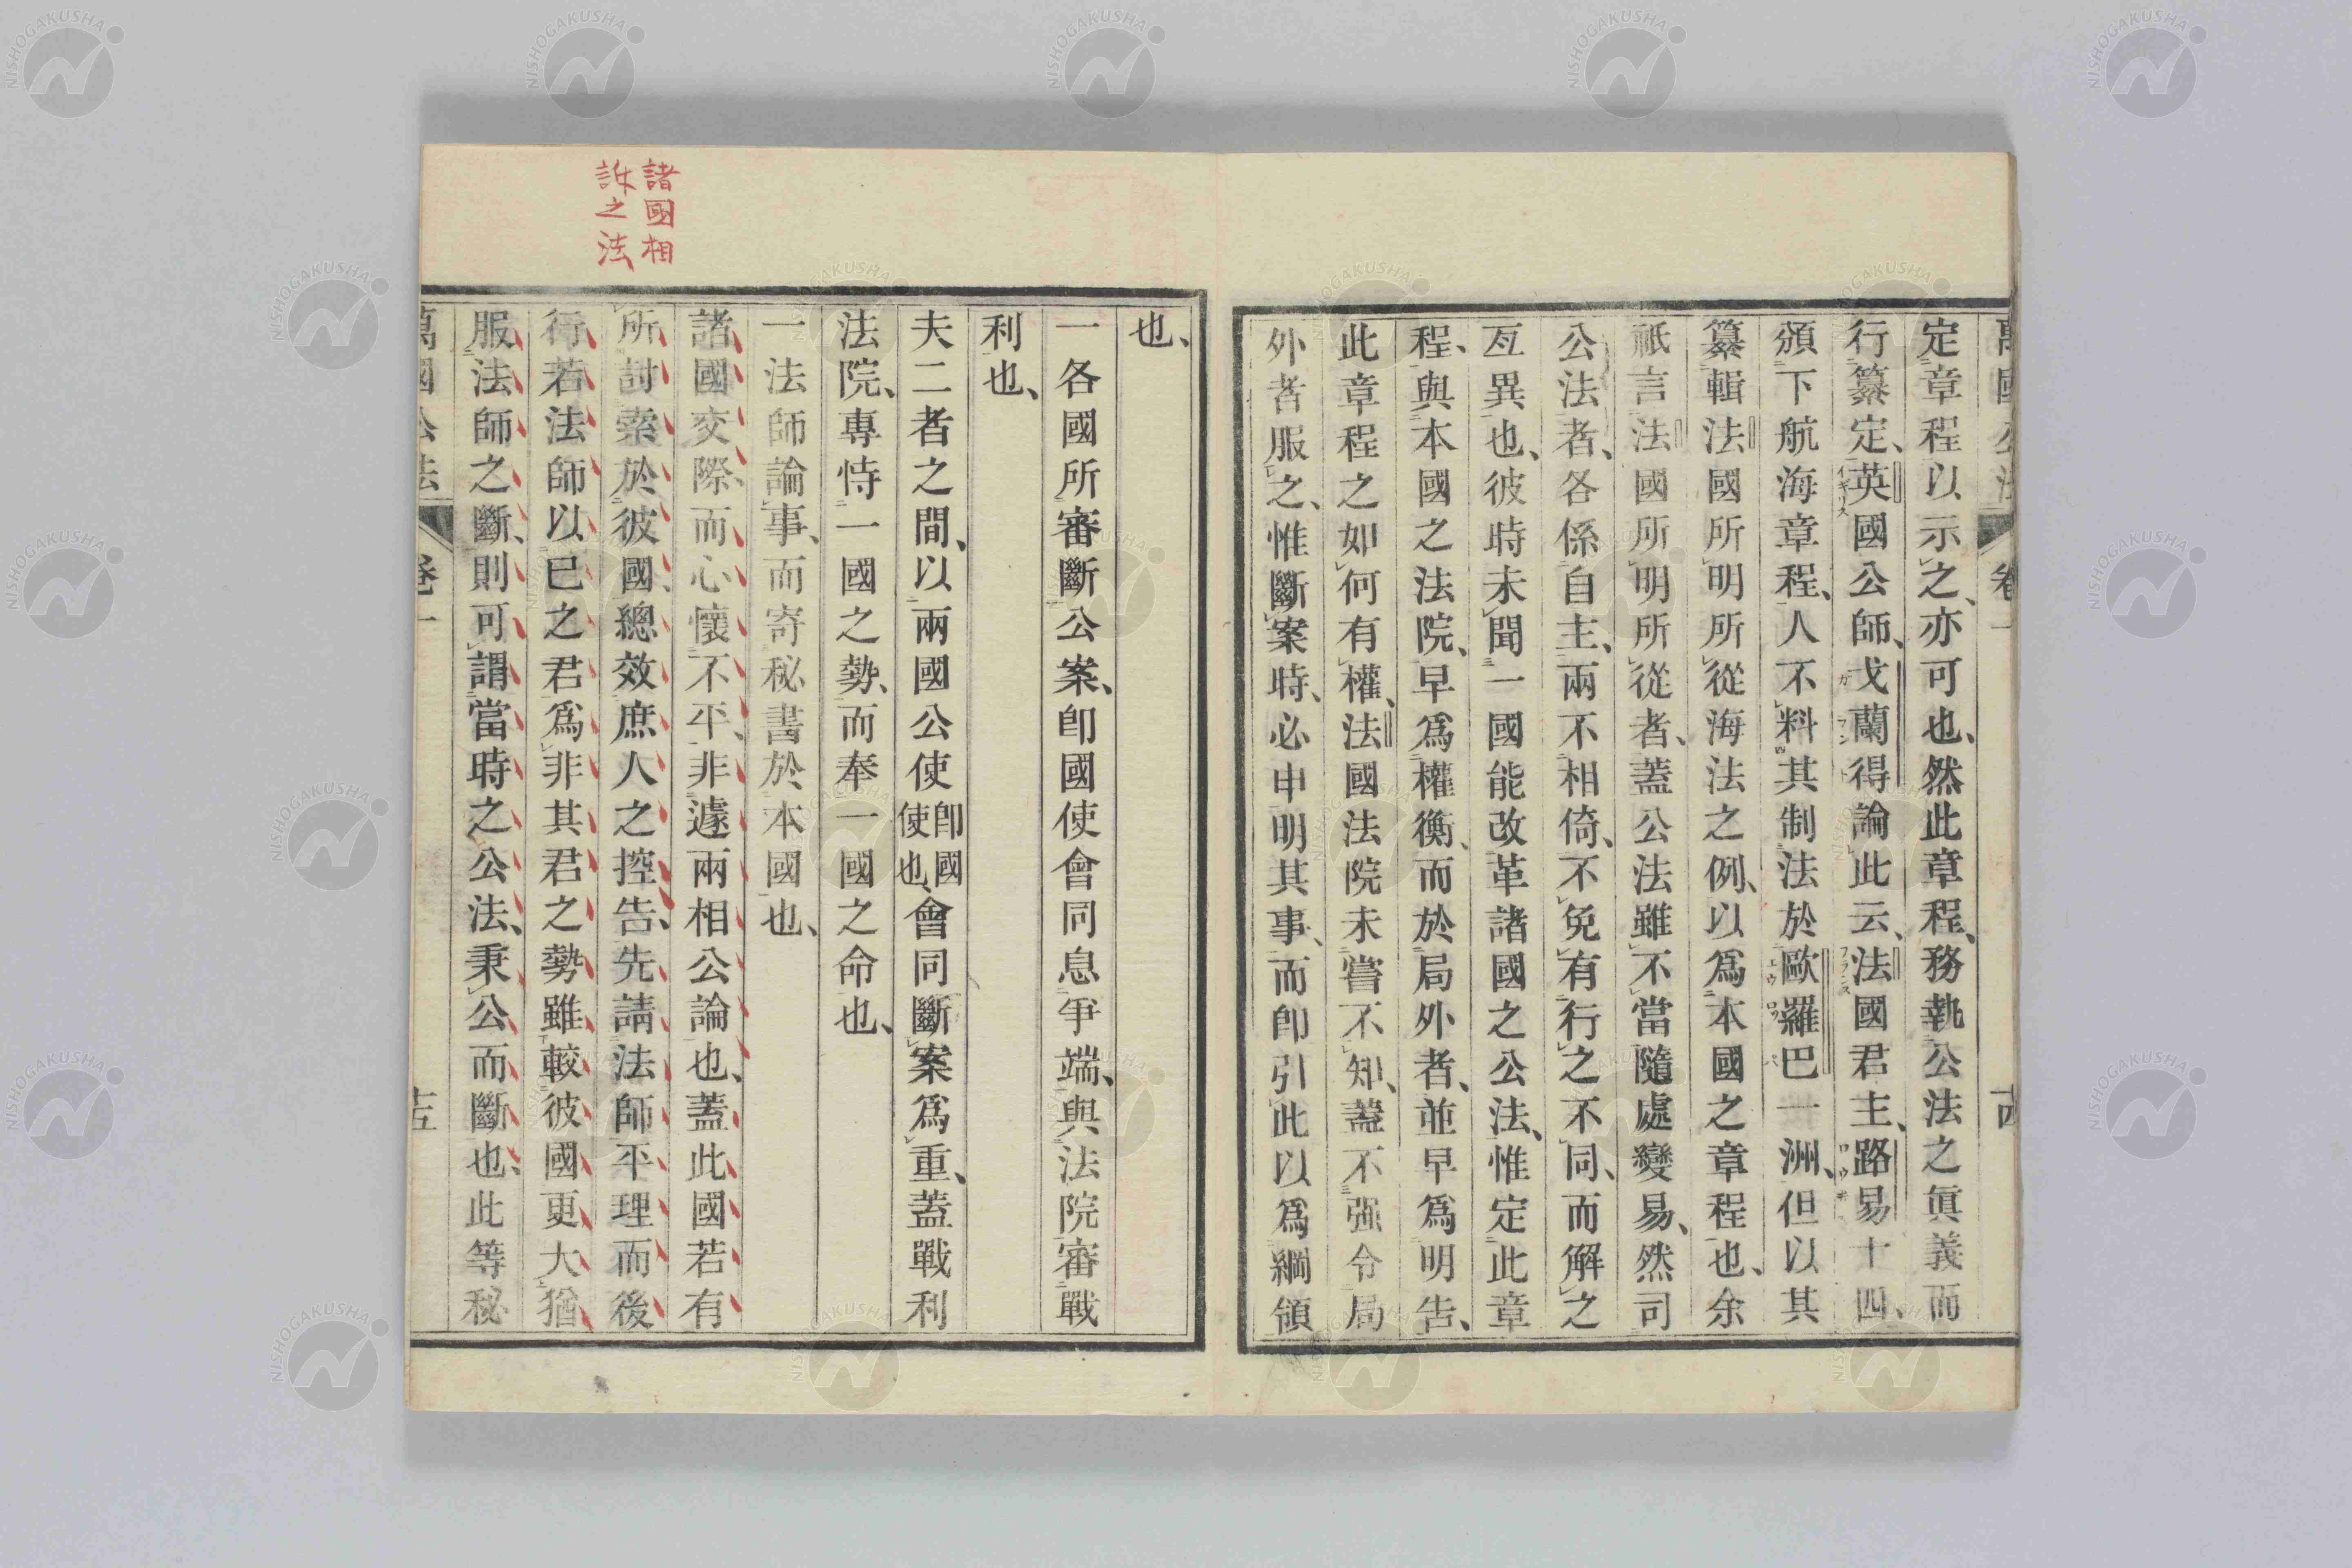 萬國公法 卷一 十四
定章程以示之、亦可也、然此章程、務執公法之眞義而
行纂定、英國公師、戈蘭得論此云、法國君主、路易十四、
頒下航海章程、人不料其制法於歐羅巴一洲、但以其
纂輯法國所明所從海法之例、以爲本國之章程也、余
祇言法國所明所從者、蓋公法雖不當隨處變易、然司
公法者、各係自主、兩不相倚、不免有行之不同、而解之
互異也、彼時未聞一國能改革諸國之公法、惟定此章
程、與本國之法院、早爲權衡、而於局外者、並早爲明告、
此章程之如何有權、法國法院未嘗不知、蓋不强令局
外者服之、惟斷案時、必申明其事、而卽引此以爲綱領
也、
一各國所審斷公案、卽國使會同息爭端、與法院審戰
利也、
夫二者之間、以兩國公使卽國使也、會同斷案爲重、蓋戰利
法院、專恃一國之勢、而奉一國之命也、
一法師論事、而寄秘書於本國也、
諸國相
訴之法
諸國交際、而心懷不平、非遽兩相公論也、蓋此國若有
所討索於彼國、總效庶人之控告、先請法師平理而後
行、若法師以已之君爲非、其君之勢雖較彼國更大、猶
服法師之斷、則可謂當時之公法、秉公而斷也、此等秘
萬國公法 卷一 十五